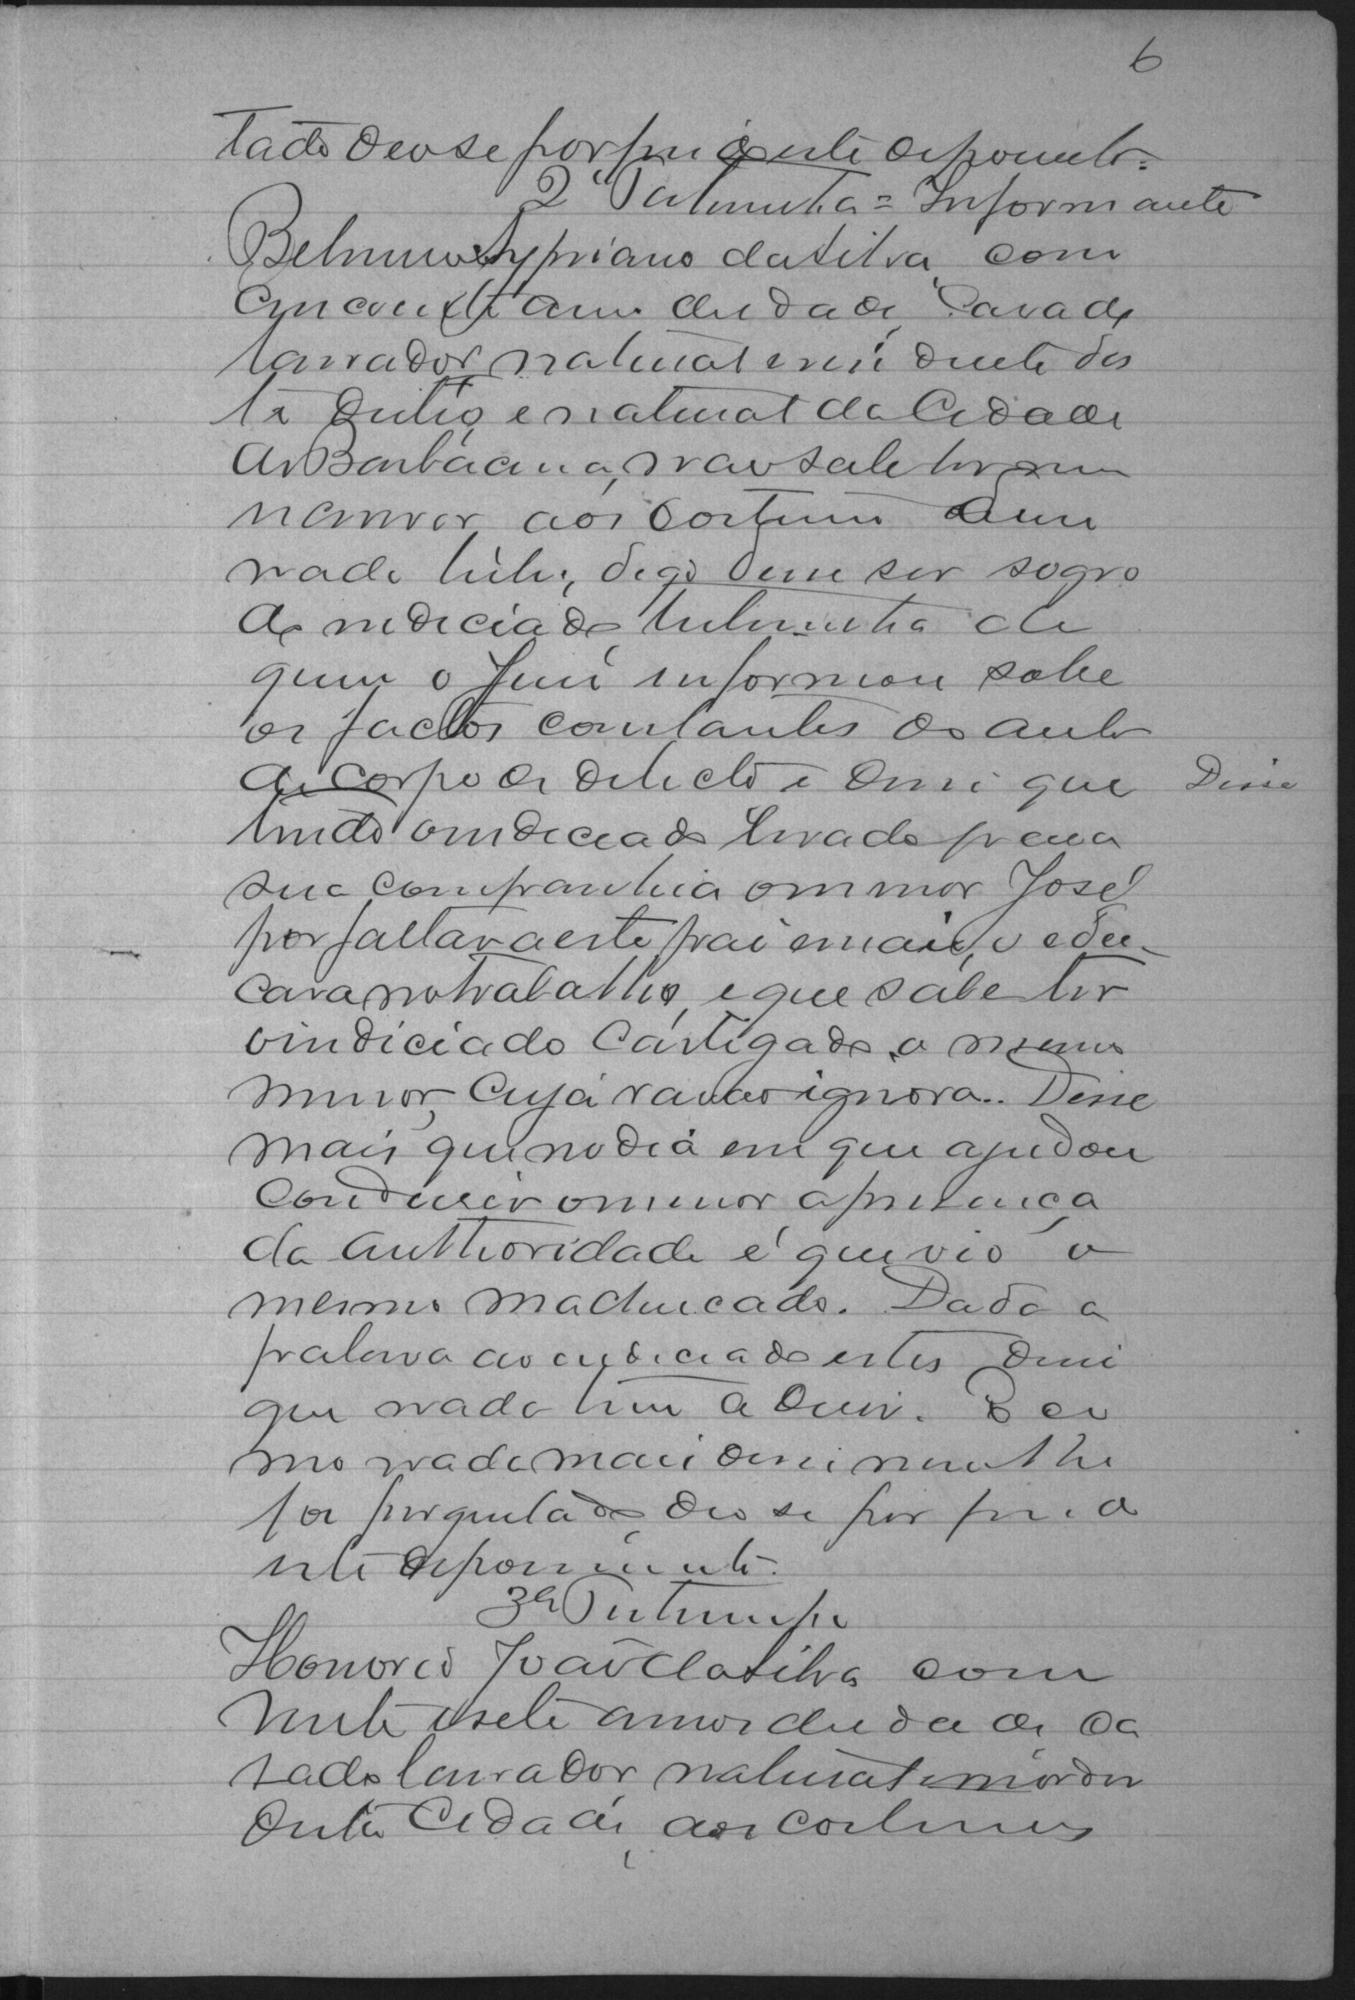 6
tado deu se por fin do este depoimento.
2ª Testemunha = Informante
Belmiro Sypriano da Silva, com
cincoenta annos de idade, casado
lavrador, natural e residente des
te Distrito, e natural da Cidade
de Barbacena, não sabe ler nem
escrever, aos costumes disse
nada tinha, digo disse ser sogro
do indiciado testemunha de
quem o Juis informou sobre
os factos constantes do auto
de corpo de delicto e disse que
Disse
tendo o indiciado levado para
sua companhia o menor José
por faltar a este pai e mai, e edu
cara no trabalho, e que sabe ter
o indiciado castigado o mesmo
menor, cuja rasão ignora. Disse
mais que no dia em que ajudou
condusir o menor a presença
da authoridade é que vio o
mesmo machucado. Dada a
palavra ao indiciado este disse
que nada tem a diser. E co
mo nada mais disse nem lhe
foi perguntado, deo se por findo
este depoimento.
3ª Testemunha
Honorio João da Silva com
vinte e sete annos de idade ca
sado lavrador, natural e morador
desta Cidade, aos costumes